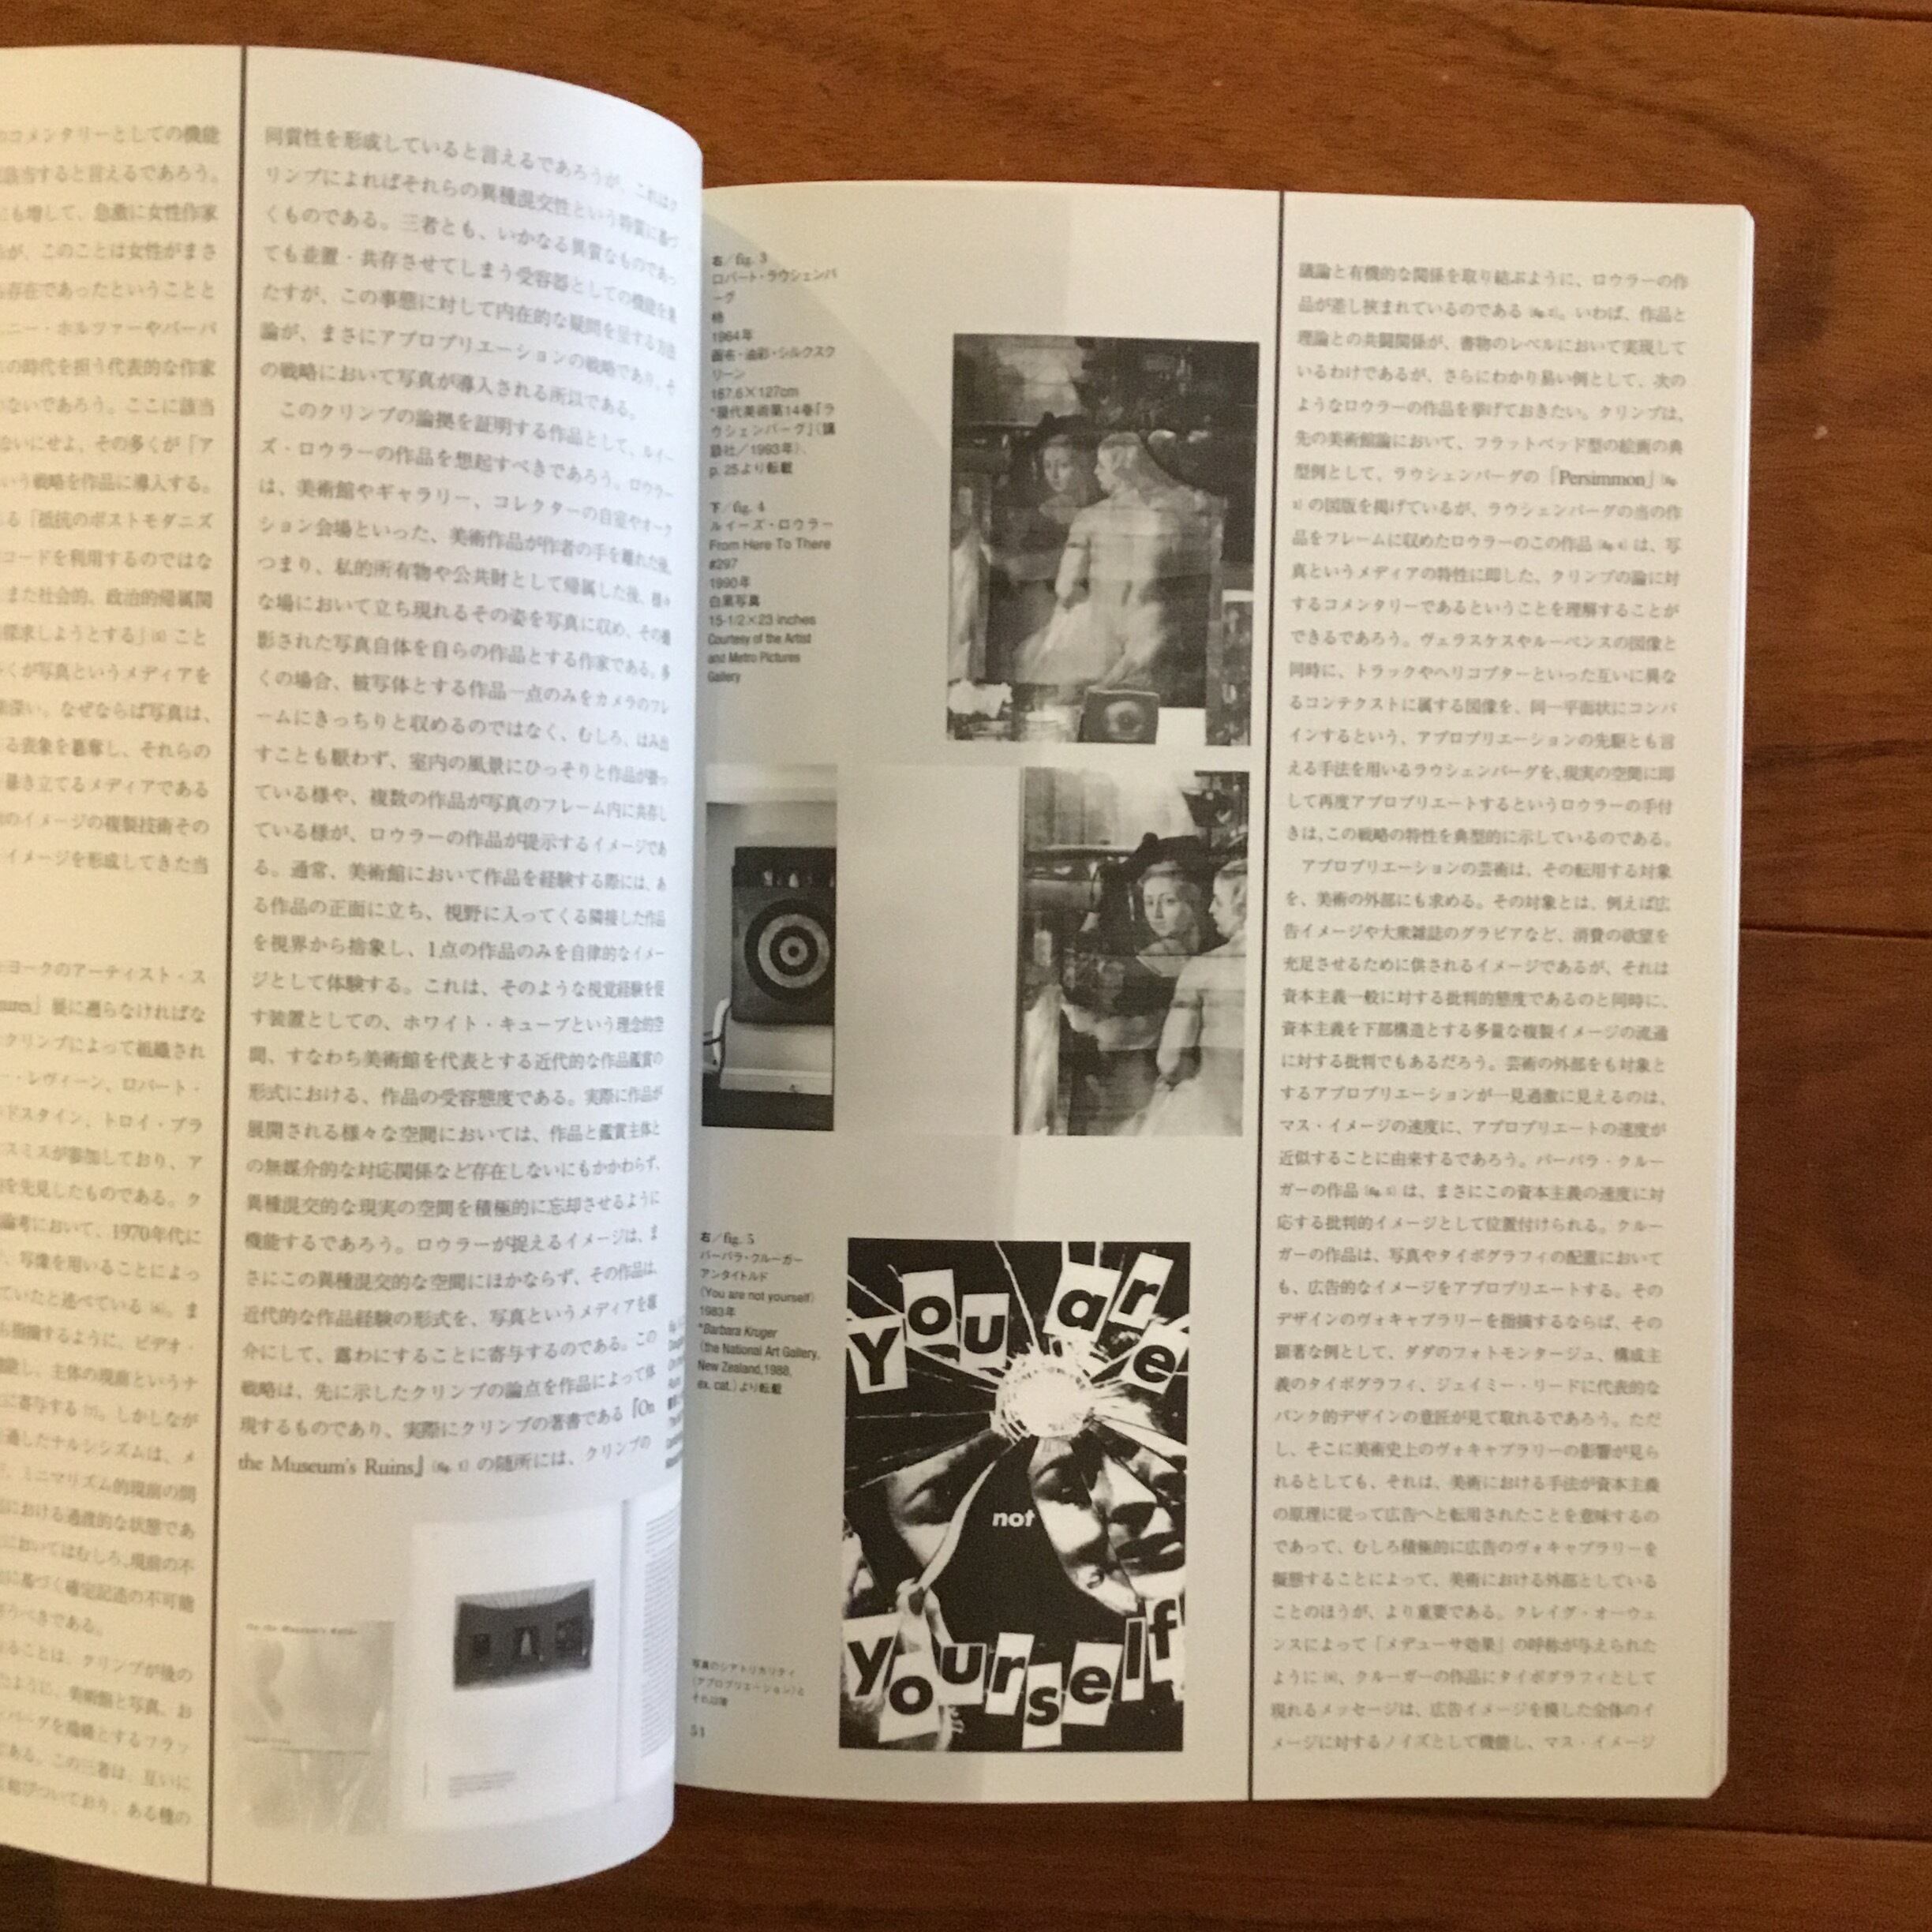 のコメンタリーとしての機能
該当すると言えるであろう。
にも増して、急激に女性作家
が、このことは女性がまさ
存在であったということと
ニー・ホルツァーやバーバ
の時代を担う代表的な作家
ないであろう。ここに該当
ないにせよ、その多くが「ア
いう戦略を作品に導入する。
る「抵抗のポストモダニズ
コードを利用するのではな
また社会的、政治的帰属関
探求しようとする」こと
くが写真というメディアを
深い。なぜならば写真は、
る表象を簒奪し、それらの
暴き立てるメディアである
のイメージの複製技術その
イメージを形成してきた当
ヨークのアーティスト・ス
展に遡らなければな
クリンプによって組織され
ー・レヴィーン、ロバート・
ドスタイン、トロイ・ブラ
スミスが参加しており、ア
を先見したものである。ク
論考において、1970年代に
、写像を用いることによっ
ていたと述べている。ま
も指摘するように、ビデオ・
機能し、主体の現前というナ
に寄与する。しかしなが
過したナルシシズムは、メ
、ミニマリズム的現前の問
における過渡的な状態であ
においてはむしろ、現前の不
に基づく確定記述の不可能
うべきである。
ることは、クリンプが後の
たように、美術館と写真、お
バーグを端緒とするフラッ
である。この三者は、互いに
結びついており、ある種の
同質性を形成していると言えるであろうが、これはク
リンプによればそれらの異種混交性という特質に基づ
くものである。三者とも、いかなる異質なものであっ
ても並置・共存させてしまう受容器としての機能を果
たすが、この事態に対して内在的な疑問を呈する方法
論が、まさにアプロプリエーションの戦略であり、そ
の戦略において写真が導入される所以である。
このクリンプの論拠を証明する作品として、ルイー
ズ・ロウラーの作品を想起すべきであろう。ロウラー
は、美術館やギャラリー、コレクターの自室やオーク
ション会場といった、美術作品が作者の手を離れた後、
つまり、私的所有物や公共財として帰属した後、様々
な場において立ち現れるその姿を写真に収め、その撮
影された写真自体を自らの作品とする作家である。多
くの場合、被写体とする作品一点のみをカメラのフレ
ームにきっちりと収めるのではなく、むしろ、はみ出
すことも厭わず、室内の風景にひっそりと作品が
ている様や、複数の作品が写真のフレーム内に共存し
ている様が、ロウラーの作品が提示するイメージであ
る。通常、美術館において作品を経験する際には、あ
る作品の正面に立ち、視野に入ってくる隣接した作品
を視界から捨象し、1点の作品のみを自律的なイメー
ジとして体験する。これは、そのような視覚経験を促
す装置としての、ホワイト・キューブという理念的空
間、すなわち美術館を代表とする近代的な作品鑑賞の
形式における、作品の受容態度である。実際に作品が
展開される様々な空間においては、作品と鑑賞主体と
の無媒介的な対応関係など存在しないにもかかわらず、
異種混交的な現実の空間を積極的に忘却させるように
機能するであろう。ロウラーが捉えるイメージは、ま
さにこの異種混交的な空間にほかならず、その作品は、
近代的な作品経験の形式を、写真というメディアを媒
介にして、露わにすることに寄与するのである。この
戦略は、先に示したクリンプの論点を作品によって体
現するものであり、実際にクリンプの著書である『On
the Museum's Ruins』の随所には、クリンプの
右／fig. 3
ロバート・ラウシェンバ
ーグ
柿
1964年
画布・油彩・シルクスク
リーン
167.6×127cm
*現代美術第14巻「ラ
ウシェンバーグ」（講
談社／1993年）、
p. 25より転載
下／fig. 4
ルイーズ・ロウラー
From Here To There
#297
1990年
白黒写真
15-1/2×23 inches
Courtesy of the Artist
and Metro Pictures
Gallery
右／fig. 5
バーバラ・クルーガー
アンタイトルド
（You are not yourself）
1983年
*Barbara Kruger
（the National Art Gallery,
New Zealand, 1988,
ex. cat.）より転載
You are
not
yourself
写真のシアトリカリティ
（アプロプリエーション）と
それ以降
51
議論と有機的な関係を取り結ぶように、ロウラーの作
品が差し挟まれているのである。いわば、作品と
理論との共闘関係が、書物のレベルにおいて実現して
いるわけであるが、さらにわかり易い例として、次の
ようなロウラーの作品を挙げておきたい。クリンプは、
先の美術館論において、フラットベッド型の絵画の典
型例として、ラウシェンバーグの「Persimmon」
の図版を掲げているが、ラウシェンバーグの当の作
品をフレームに収めたロウラーのこの作品は、写
真というメディアの特性に即した、クリンプの論に対
するコメンタリーであるということを理解することが
できるであろう。ヴェラスケスやルーベンスの図像と
同時に、トラックやヘリコプターといった互いに異な
るコンテクストに属する図像を、同一平面状にコンバ
インするという、アプロプリエーションの先駆とも言
える手法を用いるラウシェンバーグを、現実の空間に即
して再度アプロプリエートするというロウラーの手付
きは、この戦略の特性を典型的に示しているのである。
アプロプリエーションの芸術は、その転用する対象
を、美術の外部にも求める。その対象とは、例えば広
告イメージや大衆雑誌のグラビアなど、消費の欲望を
充足させるために供されるイメージであるが、それは
資本主義一般に対する批判的態度であるのと同時に、
資本主義を下部構造とする多量な複製イメージの流通
に対する批判でもあるだろう。芸術の外部をも対象と
するアプロプリエーションが一見過激に見えるのは、
マス・イメージの速度に、アプロプリエートの速度が
近似することに由来するであろう。バーバラ・クルー
ガーの作品は、まさにこの資本主義の速度に対
応する批判的イメージとして位置付けられる。クルー
ガーの作品は、写真やタイポグラフィの配置において
も、広告的なイメージをアプロプリエートする。その
デザインのヴォキャブラリーを指摘するならば、その
顕著な例として、ダダのフォトモンタージュ、構成主
義のタイポグラフィ、ジェイミー・リードに代表的な
パンク的デザインの意匠が見て取れるであろう。ただ
し、そこに美術史上のヴォキャブラリーの影響が見ら
れるとしても、それは、美術における手法が資本主義
の原理に従って広告へと転用されたことを意味するの
であって、むしろ積極的に広告のヴォキャブラリーを
擬態することによって、美術における外部としている
ことのほうが、より重要である。クレイグ・オーウェ
ンスによって「メデューサ効果」の呼称が与えられた
ように、クルーガーの作品にタイポグラフィとして
現れるメッセージは、広告イメージを模した全体のイ
メージに対するノイズとして機能し、マス・イメージ